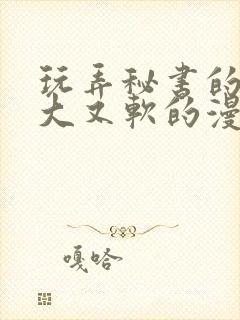 玩弄秘书的
大又软的漫
嘎哈